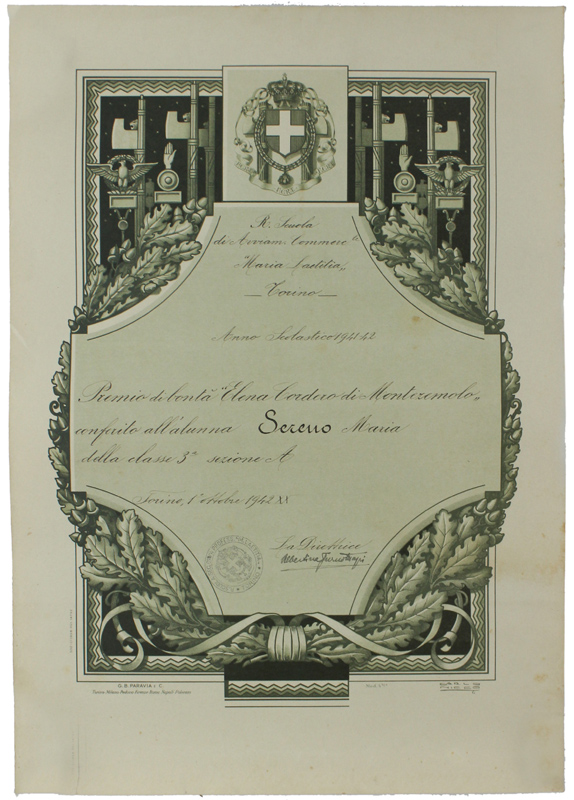 R. Scuola
di Avviam. Commerc.le
"Maria Laetitia"
— Torino —
Anno Scolastico 1941-42
Premio di bontà "Elena Cordero di Montezemolo"
conferito all'alunna Sereno Maria
della classe 3ª sezione A
Torino, 1° ottobre 1942 XX
La Direttrice
G. B. PARAVIA & C.